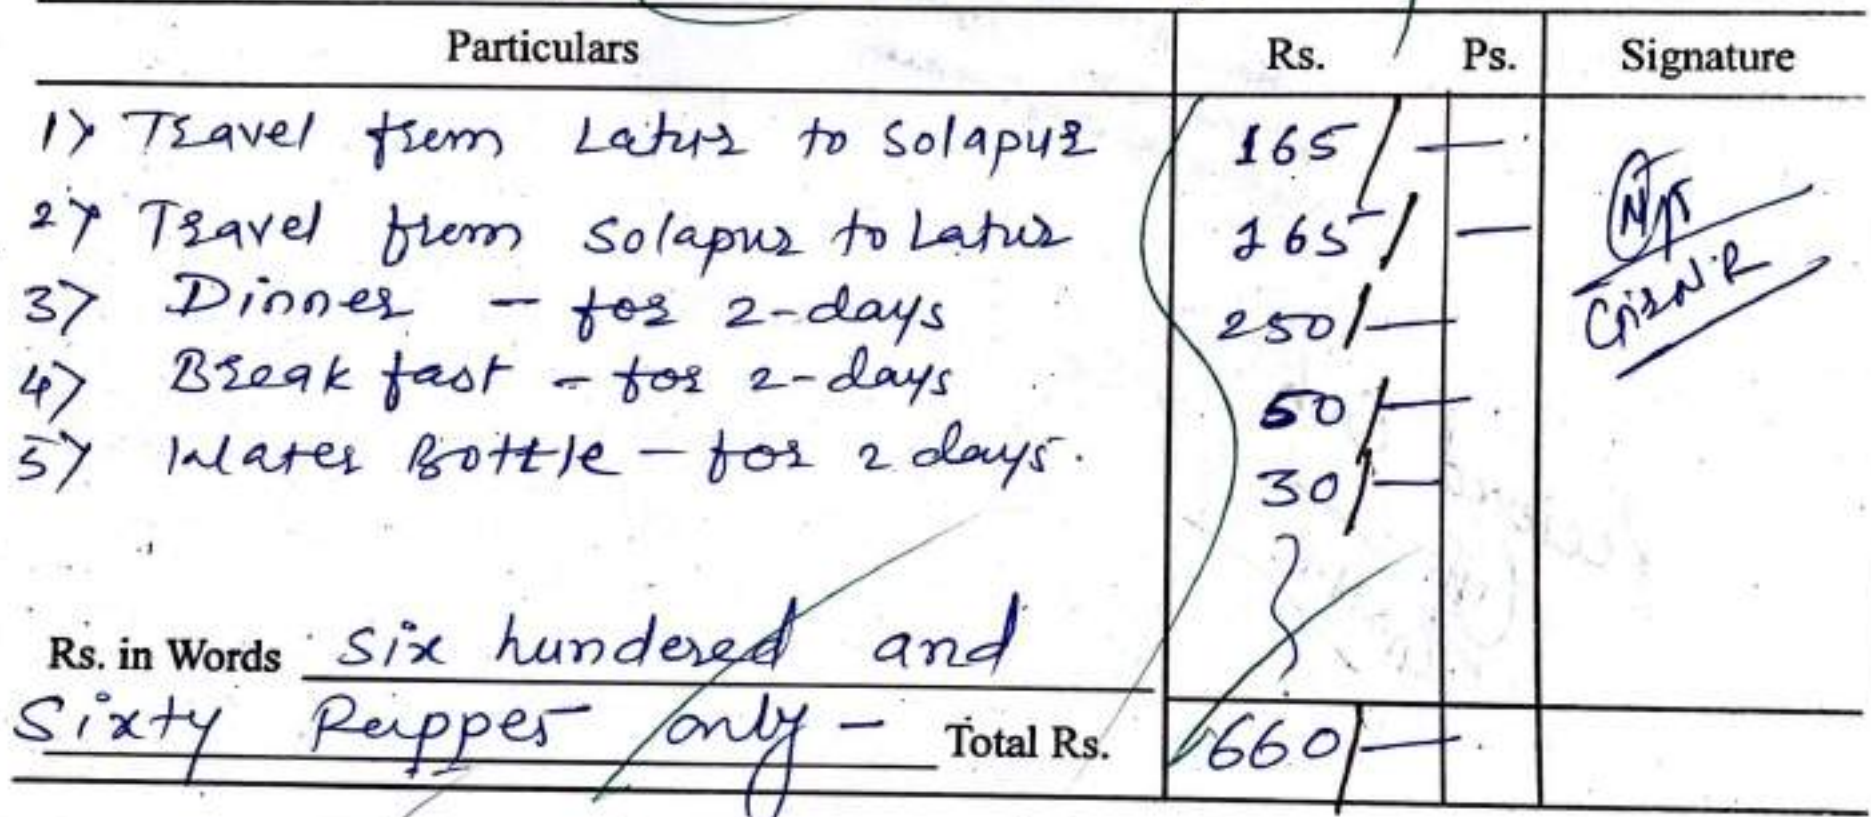 Particulars Rs. Ps. Signature
1) Travel from Latur to Solapur 165/-
2) Travel from Solapur to Latur 165/-
3) Dinner - for 2-days 250/-
4) Break fast - for 2-days 50/-
5) Water Bottle - for 2 days. 30/-
Rs. in Words Six hundered and
Sixty Ruppes only - Total Rs. 660/-